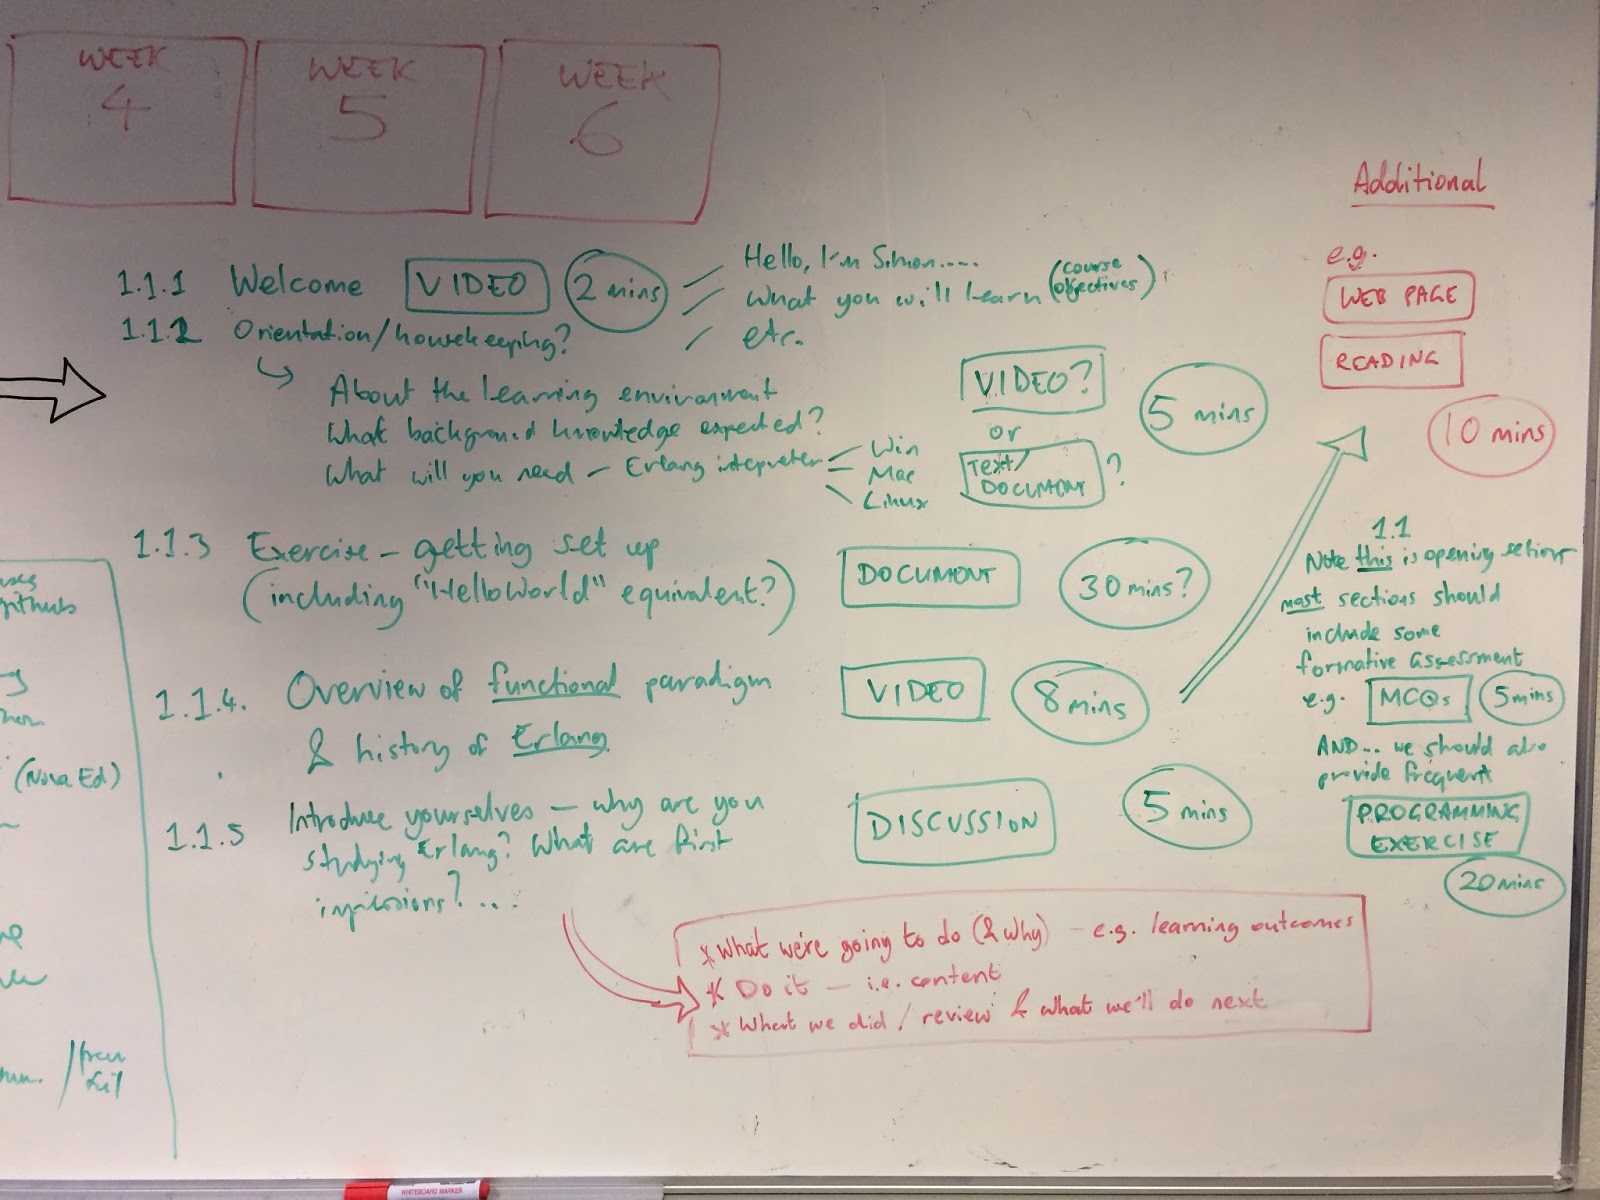 WEEK
4
WEEK
5
WEEK
6
Additional
e.g.
WEB PAGE
READING
10 mins
1.1.1 Welcome VIDEO 2 mins
Hello, I'm Simon....
What you will learn (course objectives)
etc.
1.1.2 Orientation/housekeeping?
About the learning environment
What background knowledge expected?
What will you need – Erlang intepreter
Win
Mac
Linux
VIDEO?
or
Text/
DOCUMENT ?
5 mins
1.1.3 Exercise – getting set up
(including "HelloWorld" equivalent?)
DOCUMENT 30 mins?
1.1.4. Overview of functional paradigm
& history of Erlang
VIDEO 8 mins
1.1.5 Introduce yourselves – why are you
studying Erlang? What are first
impressions?...
DISCUSSION 5 mins
* What we're going to do (& why) – e.g. learning outcomes
* Do it – i.e. content
* What we did / review & what we'll do next
1.1
Note this is opening section
most sections should
include some
formative assessment
e.g. MCQs 5 mins
AND... we should also
provide frequent
PROGRAMMING
EXERCISE
20 mins
githubs
(Nova Ed)
WHITEBOARD MARKER